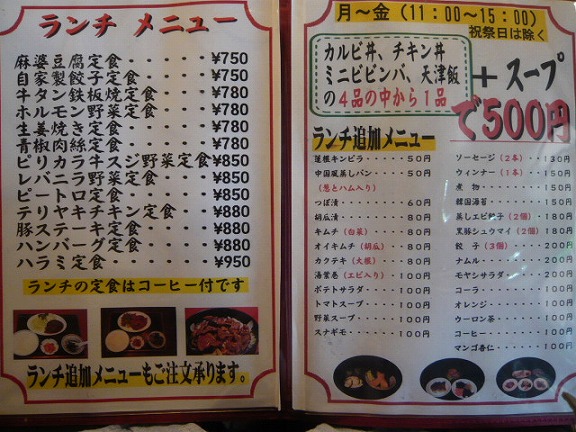 ランチ メニュー
麻婆豆腐定食・・・・・¥750
自家製餃子定食・・・・¥750
牛タン鉄板焼定食・・・¥780
ホルモン野菜定食・・・¥780
生姜焼き定食・・・・・¥780
青椒肉絲定食・・・・・¥780
ピリカラ牛スジ野菜定食¥850
レバニラ野菜定食・・・¥850
ピートロ定食・・・・・¥850
テリヤキチキン定食・・¥880
豚ステーキ定食・・・・¥880
ハンバーグ定食・・・・¥880
ハラミ定食・・・・・・¥950
ランチの定食はコーヒー付です
ランチ追加メニューもご注文承ります。
月～金(11:00～15:00)
祝祭日は除く
カルビ丼、チキン丼
ミニビビンバ、天津飯
の4品の中から1品
+スープ
で500円
ランチ追加メニュー
蓮根キンピラ・・・・・50円
中国風蒸しパン・・・・50円
(葱とハム入り)
つぼ漬・・・・・・・・60円
胡瓜漬・・・・・・・・80円
キムチ(白菜)・・・・80円
オイキムチ(胡瓜)・・80円
カクテキ(大根)・・・80円
海苔巻(エビ入り)・・100円
ポテトサラダ・・・・・100円
トマトスープ・・・・・100円
野菜スープ・・・・・・100円
スナギモ・・・・・・・100円
ソーセージ(2本)・・130円
ウィンナー(1本)・・150円
煮 物・・・・・・・・150円
韓国海苔・・・・・・・150円
蒸しエビ餃子(2個)・180円
黒豚シュウマイ(2個)・180円
餃 子(3個)・・・・200円
ナムル・・・・・・・・200円
モヤシサラダ・・・・・200円
コーラ・・・・・・・・100円
オレンジ・・・・・・・100円
ウーロン茶・・・・・・100円
コーヒー・・・・・・・100円
マンゴ杏仁・・・・・・100円